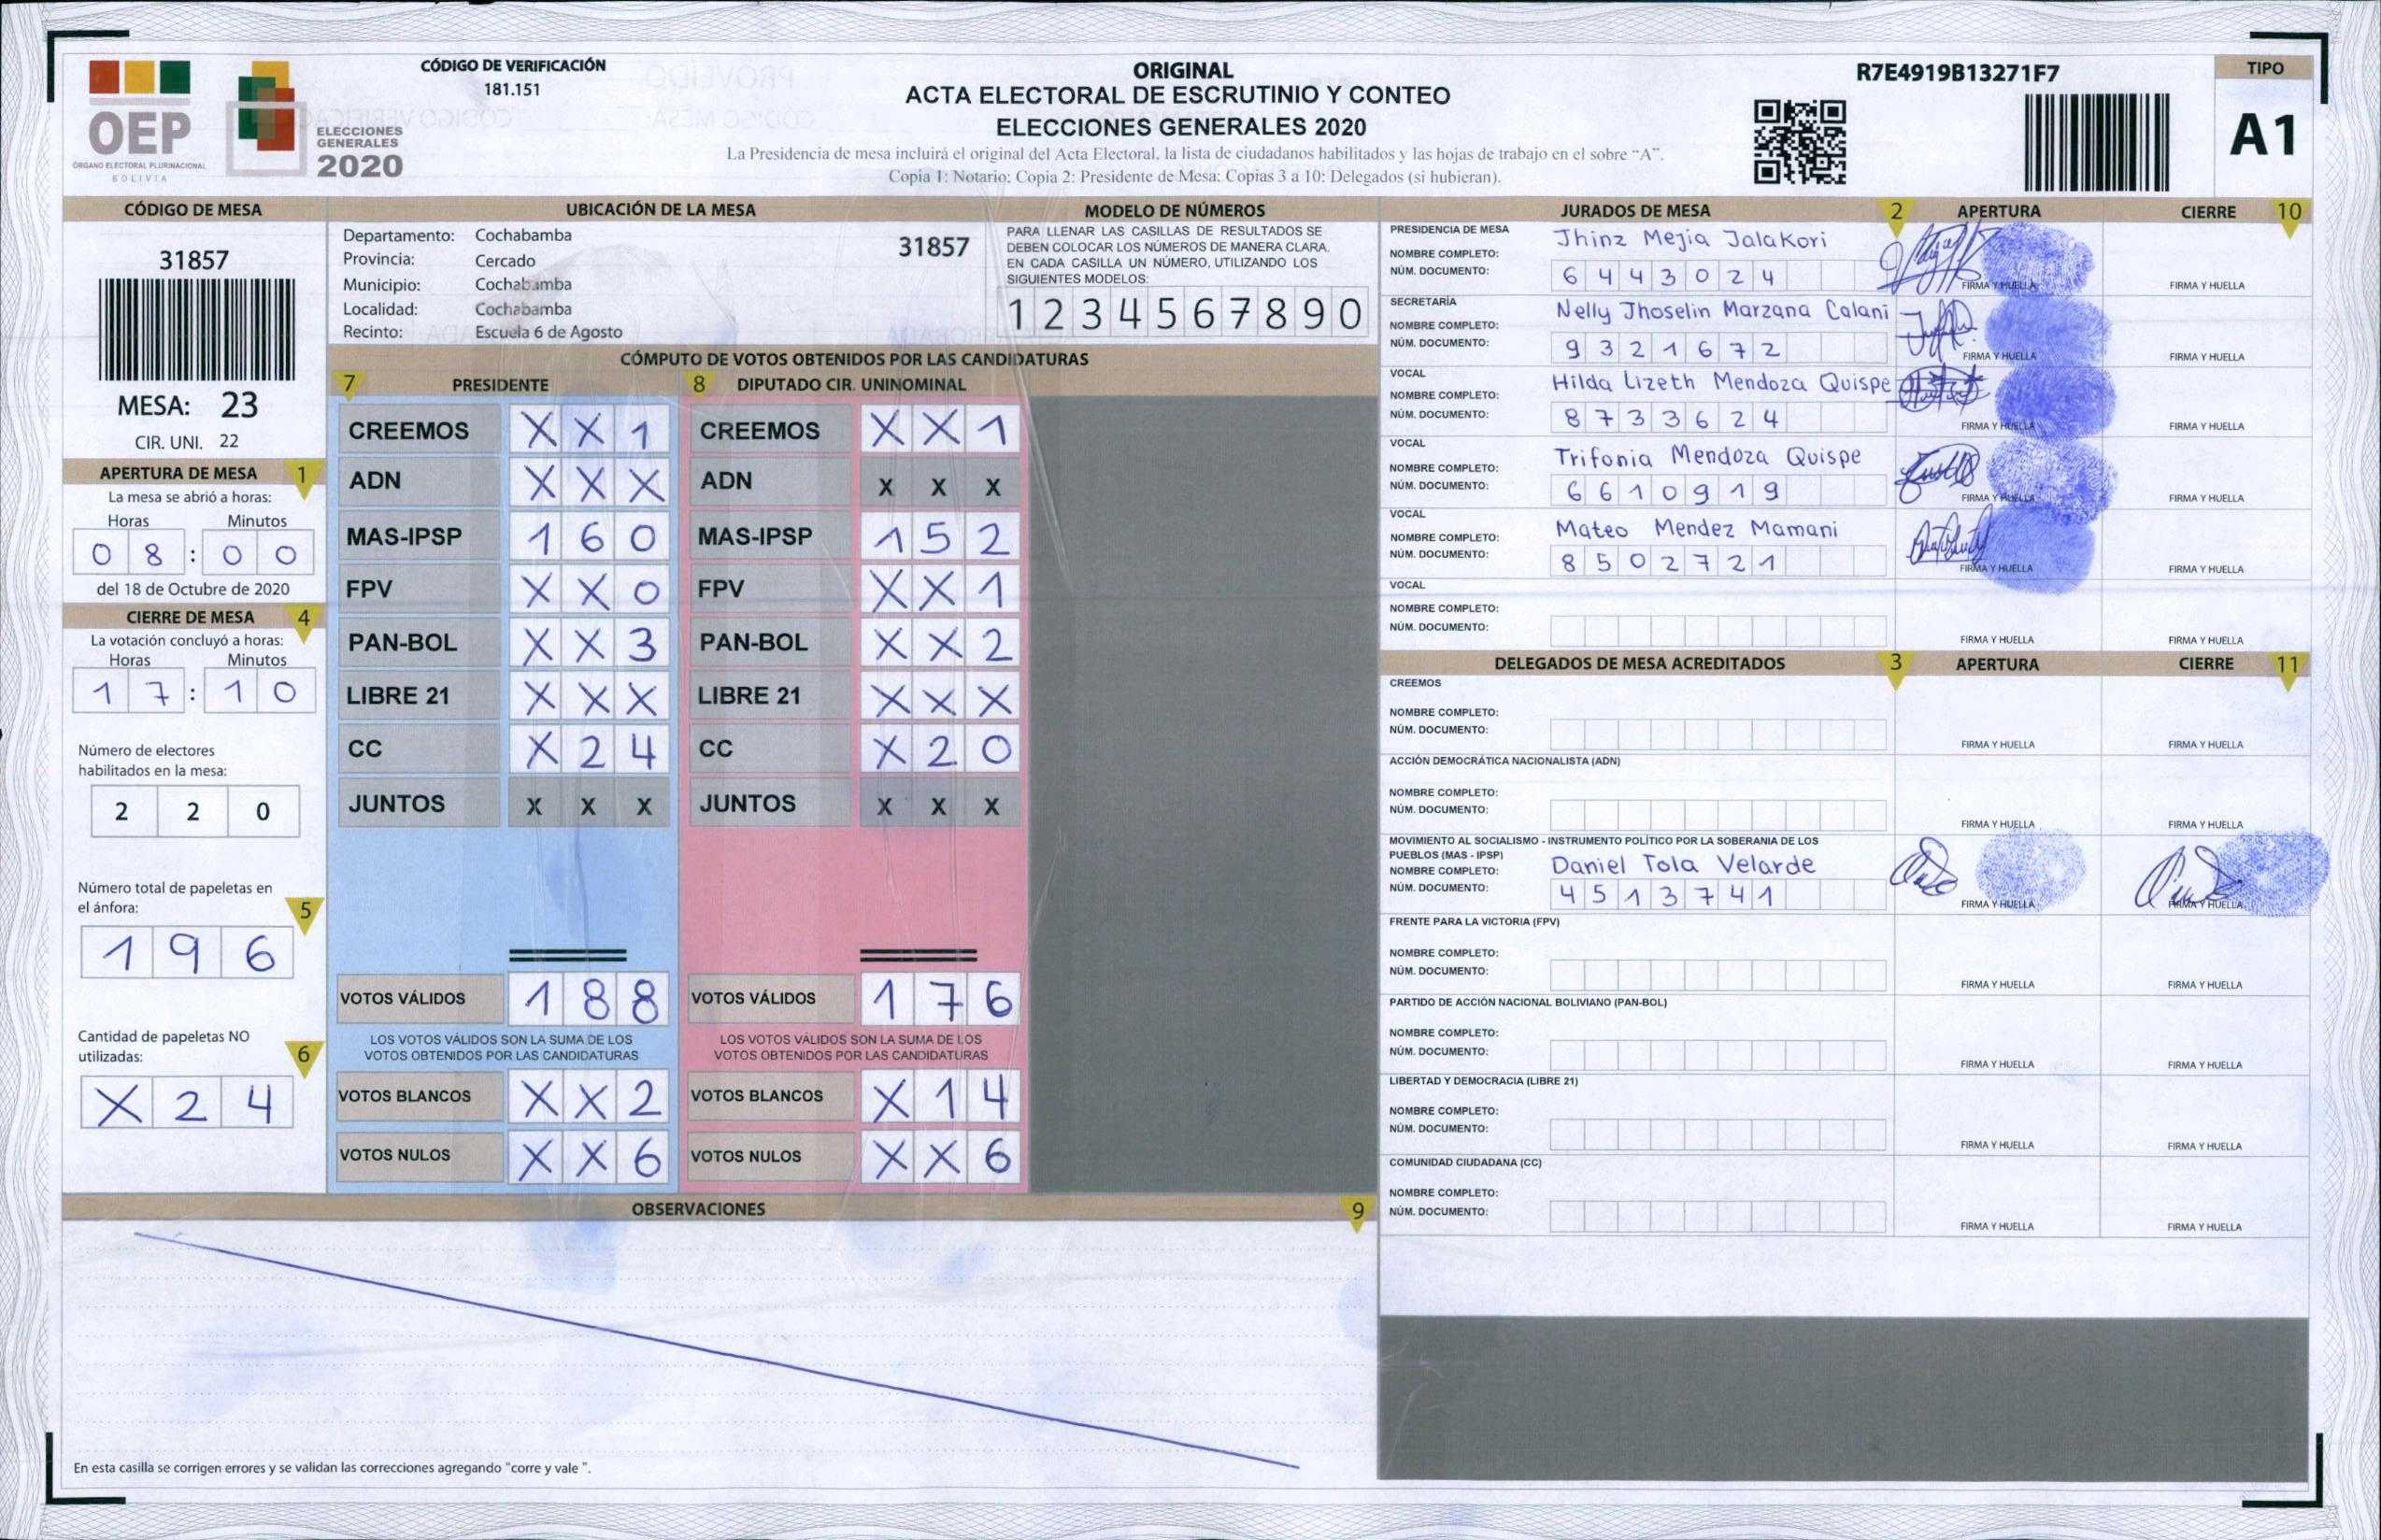 OEP
ÓRGANO ELECTORAL PLURINACIONAL
BOLIVIA
ELECCIONES
GENERALES
2020
CÓDIGO DE VERIFICACIÓN
181.151
ORIGINAL
ACTA ELECTORAL DE ESCRUTINIO Y CONTEO
ELECCIONES GENERALES 2020
La Presidencia de mesa incluirá el original del Acta Electoral, la lista de ciudadanos habilitados y las hojas de trabajo en el sobre “A”.
Copia 1: Notario; Copia 2: Presidente de Mesa; Copias 3 a 10: Delegados (si hubieran).
R7E4919B13271F7
TIPO
A1
CÓDIGO DE MESA
31857
MESA: 23
CIR. UNI. 22
APERTURA DE MESA 1
La mesa se abrió a horas:
Horas Minutos
0 8 : 0 0
del 18 de Octubre de 2020
CIERRE DE MESA 4
La votación concluyó a horas:
Horas Minutos
1 7 : 1 0
Número de electores
habilitados en la mesa:
2 2 0
Número total de papeletas en
el ánfora: 5
1 9 6
Cantidad de papeletas NO
utilizadas: 6
X 2 4
UBICACIÓN DE LA MESA
Departamento: Cochabamba
Provincia: Cercado
Municipio: Cochabamba
Localidad: Cochabamba
Recinto: Escuela 6 de Agosto
31857
MODELO DE NÚMEROS
PARA LLENAR LAS CASILLAS DE RESULTADOS SE
DEBEN COLOCAR LOS NÚMEROS DE MANERA CLARA.
EN CADA CASILLA UN NÚMERO, UTILIZANDO LOS
SIGUIENTES MODELOS:
1 2 3 4 5 6 7 8 9 0
CÓMPUTO DE VOTOS OBTENIDOS POR LAS CANDIDATURAS
7 PRESIDENTE 8 DIPUTADO CIR. UNINOMINAL
CREEMOS X X 1 CREEMOS X X 1
ADN X X X ADN X X X
MAS-IPSP 1 6 0 MAS-IPSP 1 5 2
FPV X X 0 FPV X X 1
PAN-BOL X X 3 PAN-BOL X X 2
LIBRE 21 X X X LIBRE 21 X X X
CC X 2 4 CC X 2 0
JUNTOS X X X JUNTOS X X X
VOTOS VÁLIDOS 1 8 8 VOTOS VÁLIDOS 1 7 6
LOS VOTOS VÁLIDOS SON LA SUMA DE LOS LOS VOTOS VÁLIDOS SON LA SUMA DE LOS
VOTOS OBTENIDOS POR LAS CANDIDATURAS VOTOS OBTENIDOS POR LAS CANDIDATURAS
VOTOS BLANCOS X X 2 VOTOS BLANCOS X 1 4
VOTOS NULOS X X 6 VOTOS NULOS X X 6
OBSERVACIONES 9
En esta casilla se corrigen errores y se validan las correcciones agregando "corre y vale ".
JURADOS DE MESA 2 APERTURA CIERRE 10
PRESIDENCIA DE MESA
NOMBRE COMPLETO: Jhinz Mejia Jalakori
NÚM. DOCUMENTO: 6 4 4 3 0 2 4
FIRMA Y HUELLA FIRMA Y HUELLA
SECRETARÍA
NOMBRE COMPLETO: Nelly Jhoselin Marzana Calani
NÚM. DOCUMENTO: 9 3 2 1 6 7 2
FIRMA Y HUELLA FIRMA Y HUELLA
VOCAL
NOMBRE COMPLETO: Hilda Lizeth Mendoza Quispe
NÚM. DOCUMENTO: 8 7 3 3 6 2 4
FIRMA Y HUELLA FIRMA Y HUELLA
VOCAL
NOMBRE COMPLETO: Trifonia Mendoza Quispe
NÚM. DOCUMENTO: 6 6 1 0 9 1 9
FIRMA Y HUELLA FIRMA Y HUELLA
VOCAL
NOMBRE COMPLETO: Mateo Mendez Mamani
NÚM. DOCUMENTO: 8 5 0 2 7 2 1
FIRMA Y HUELLA FIRMA Y HUELLA
VOCAL
NOMBRE COMPLETO:
NÚM. DOCUMENTO:
FIRMA Y HUELLA FIRMA Y HUELLA
DELEGADOS DE MESA ACREDITADOS 3 APERTURA CIERRE 11
CREEMOS
NOMBRE COMPLETO:
NÚM. DOCUMENTO:
FIRMA Y HUELLA FIRMA Y HUELLA
ACCIÓN DEMOCRÁTICA NACIONALISTA (ADN)
NOMBRE COMPLETO:
NÚM. DOCUMENTO:
FIRMA Y HUELLA FIRMA Y HUELLA
MOVIMIENTO AL SOCIALISMO - INSTRUMENTO POLÍTICO POR LA SOBERANIA DE LOS
PUEBLOS (MAS - IPSP)
NOMBRE COMPLETO: Daniel Tola Velarde
NÚM. DOCUMENTO: 4 5 1 3 7 4 1
FIRMA Y HUELLA FIRMA Y HUELLA
FRENTE PARA LA VICTORIA (FPV)
NOMBRE COMPLETO:
NÚM. DOCUMENTO:
FIRMA Y HUELLA FIRMA Y HUELLA
PARTIDO DE ACCIÓN NACIONAL BOLIVIANO (PAN-BOL)
NOMBRE COMPLETO:
NÚM. DOCUMENTO:
FIRMA Y HUELLA FIRMA Y HUELLA
LIBERTAD Y DEMOCRACIA (LIBRE 21)
NOMBRE COMPLETO:
NÚM. DOCUMENTO:
FIRMA Y HUELLA FIRMA Y HUELLA
COMUNIDAD CIUDADANA (CC)
NOMBRE COMPLETO:
NÚM. DOCUMENTO:
FIRMA Y HUELLA FIRMA Y HUELLA